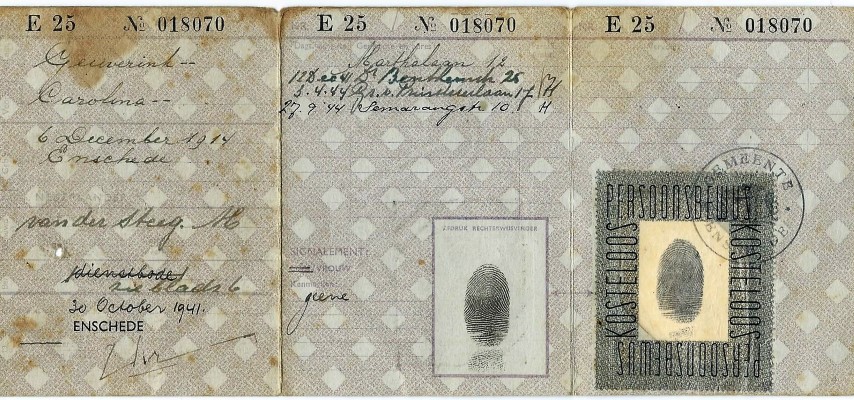 E 25 № 018070
Geuverink--
Carolina--
6 December 1914
Enschede
van der Steeg. M
dienstbode
zie bladz 6
30 October 1941.
ENSCHEDE
E 25 № 018070
Marthalaan 12
B. Benthemstr 26
3.4.'44 17
27.9.'44 Semarangstr 10. H
SIGNALEMENT
VROUW
geene
AFDRUK RECHTERWIJSVINGER
E 25 № 018070
GEMEENTE
ENSCHEDE
PERSOONSBEWIJS
KOSTELOOS
KOSTELOOS
PERSOONSBEWIJS